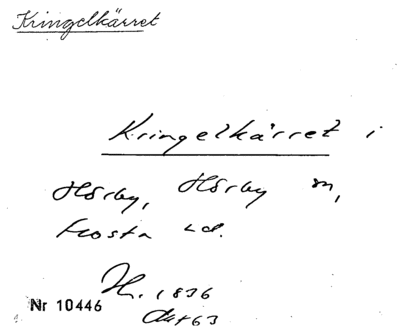 Kringelkärret
Kringelkärret i
Hörby, Hörby sn,
Frosta hd.
H. 1836
Nr 10446
akt 63